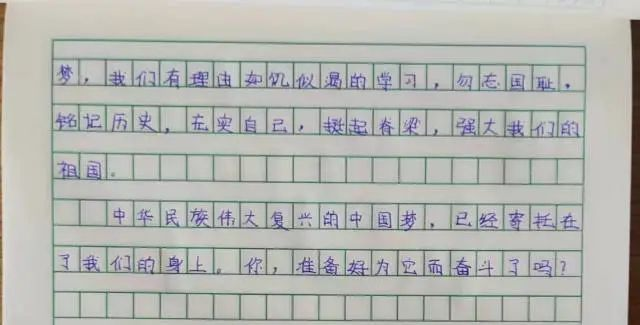 梦，我们有理由如饥似渴的学习，勿忘国耻，
铭记历史，在实自己，挺起脊梁，强大我们的
祖国。
中华民族伟大复兴的中国梦，已经寄托在
了我们的身上。你，准备好为它而奋斗了吗？